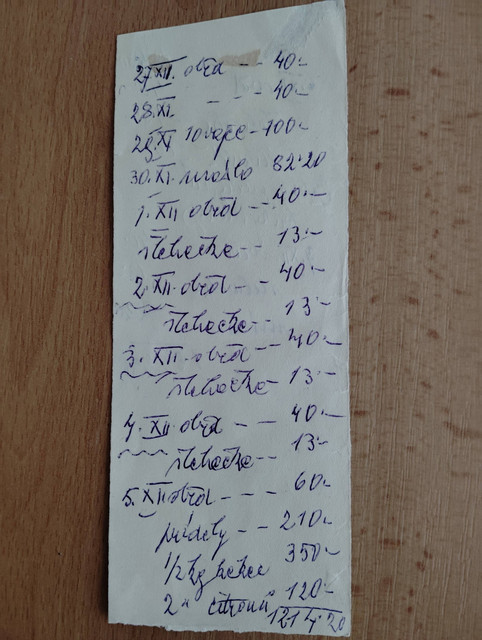 27 XII. oběd -- 40.-
28. XI. - - - 40.-
29. XI 10 vajec - 100.-
30. XI. máslo 82.20
1. XII oběd -- 40.-
šlehačka -- 13.-
2. XII. oběd -- 40.-
šlehačka -- 13.-
3. XII. oběd -- 40.-
šlehačka - 13.-
4. XII. oběd -- 40.-
šlehačka -- 13.-
5. XII oběd - - - - 60.-
-- 210.-
1/2 kg 350.-
2 " citronů 120.-
1214.20